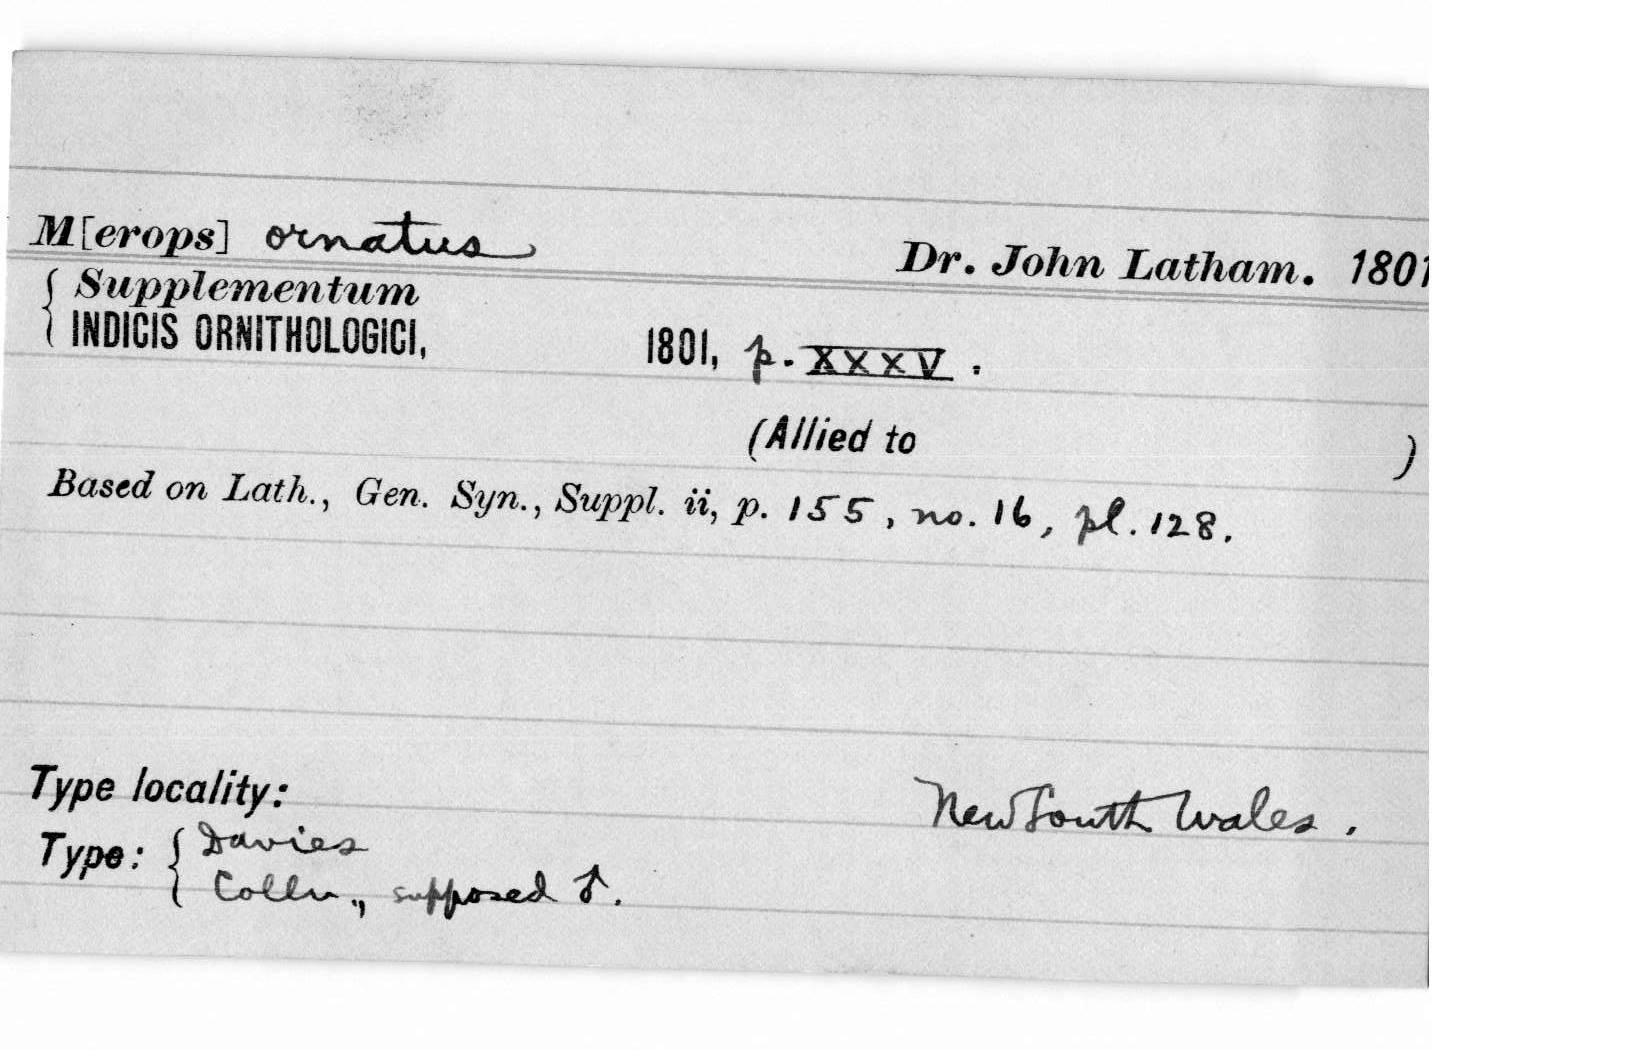 M[erops] ornatus Dr. John Latham. 1801
{ Supplementum
INDICIS ORNITHOLOGICI, 1801, p. XXXV.
(Allied to )
Based on Lath., Gen. Syn., Suppl. ii, p. 155, no. 16, pl. 128.
Type locality: New South Wales.
Type: { Davies
Colln., supposed ♂.